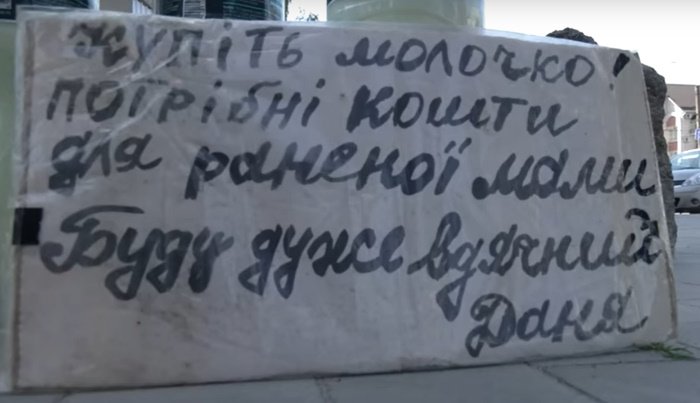 Купіть молочко!
потрібні кошти
для раненої мами
Буду дуже вдячний
Даня